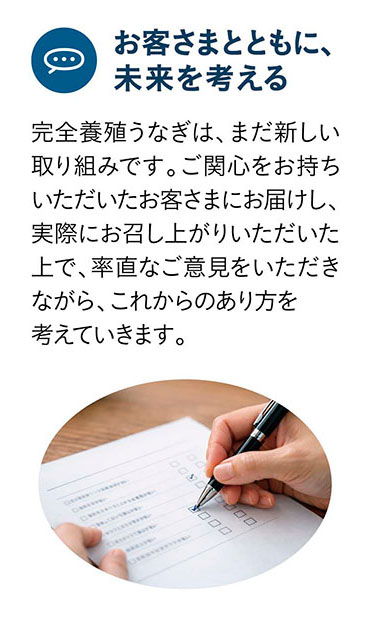 お客さまとともに、
未来を考える
完全養殖うなぎは、まだ新しい
取り組みです。ご関心をお持ち
いただいたお客さまにお届けし、
実際にお召し上がりいただいた
上で、率直なご意見をいただき
ながら、これからのあり方を
考えていきます。